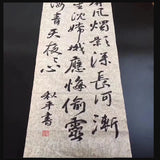 風燭影深長河漸
星沈嫦娥應悔偷靈
海青天夜々心
平書